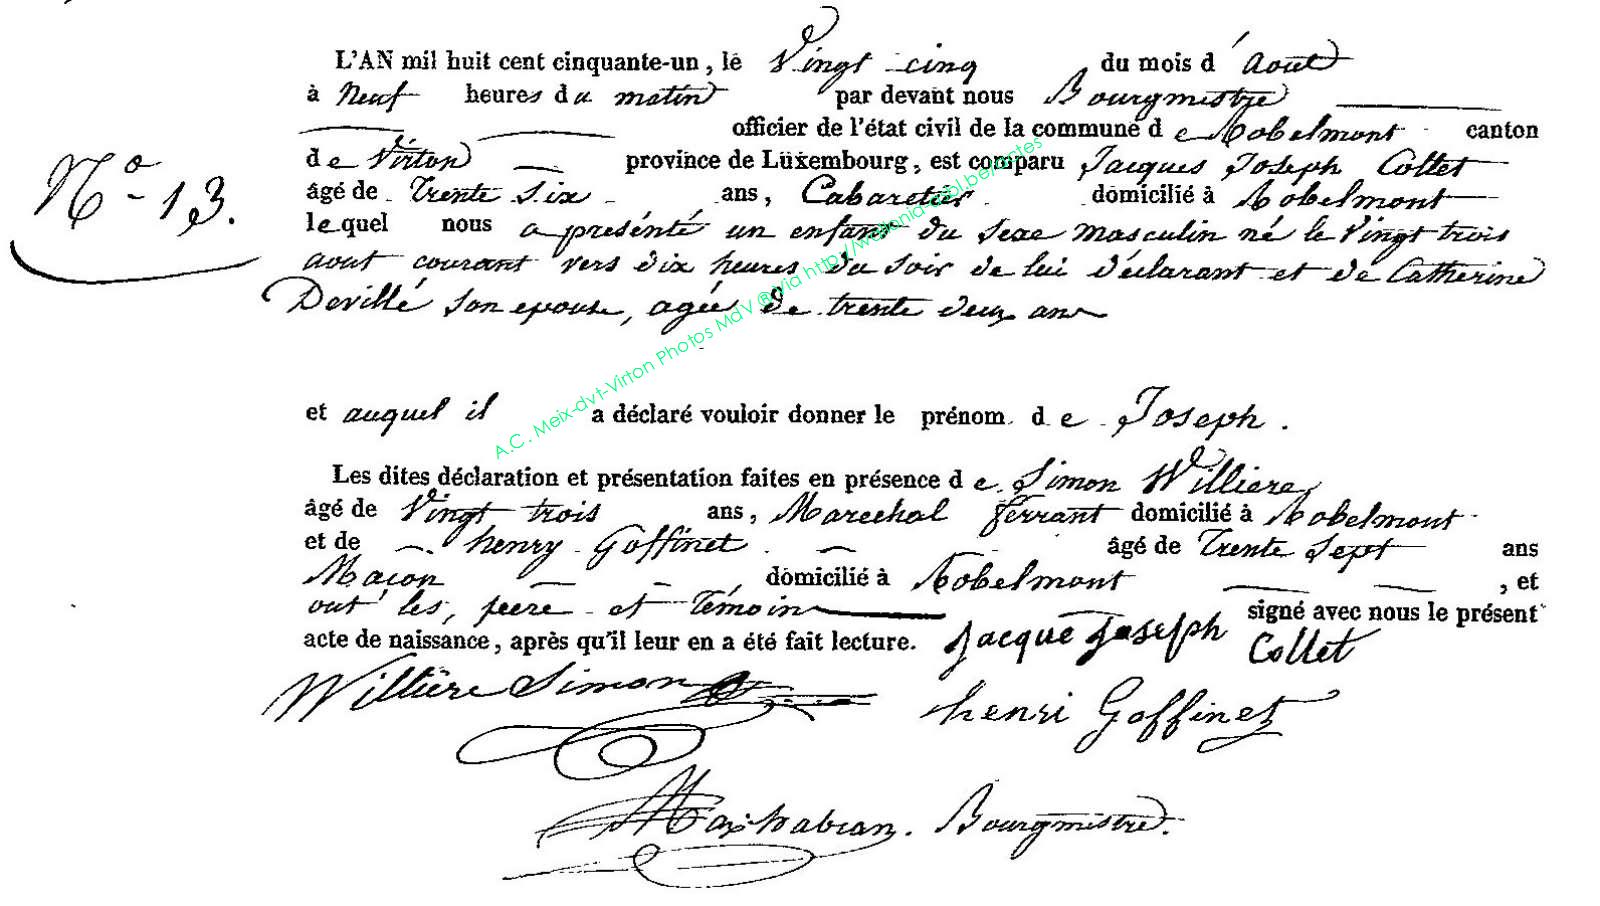 L'AN mil huit cent cinquante-un, le Vingt cinq du mois d'Aout
à Neuf heures du matin par devant nous Bourgmestre
officier de l'état civil de la commune de Robelmont canton
de Virton province de Luxembourg, est comparu Jacques Joseph Collet
N° 13.
âgé de Trente Six ans, Cabaretier domicilié à Robelmont
lequel nous a présénté un enfant du sexe masculin né le Vingt trois
aout courant vers dix heures du soir de lui déclarant et de Catherine
Devillé son epouse, agée de trente deux ans
et auquel il a déclaré vouloir donner le prénom de Joseph.
Les dites déclaration et présentation faites en présence de Simon Williere
âgé de Vingt trois ans, Marechal ferrant domicilié à Robelmont
et de henry Goffinet âgé de Trente Sept ans
Maçon domicilié à Robelmont, et
ont les, peere et témoins signé avec nous le présent
acte de naissance, après qu'il leur en a été fait lecture. Jacque Joseph Collet
Willière Simon henri Goffinet
Bourgmestre.
A.C. Meix-dvt-Virton Photos MdV ® Via http://wallonia-asbl.be/actes